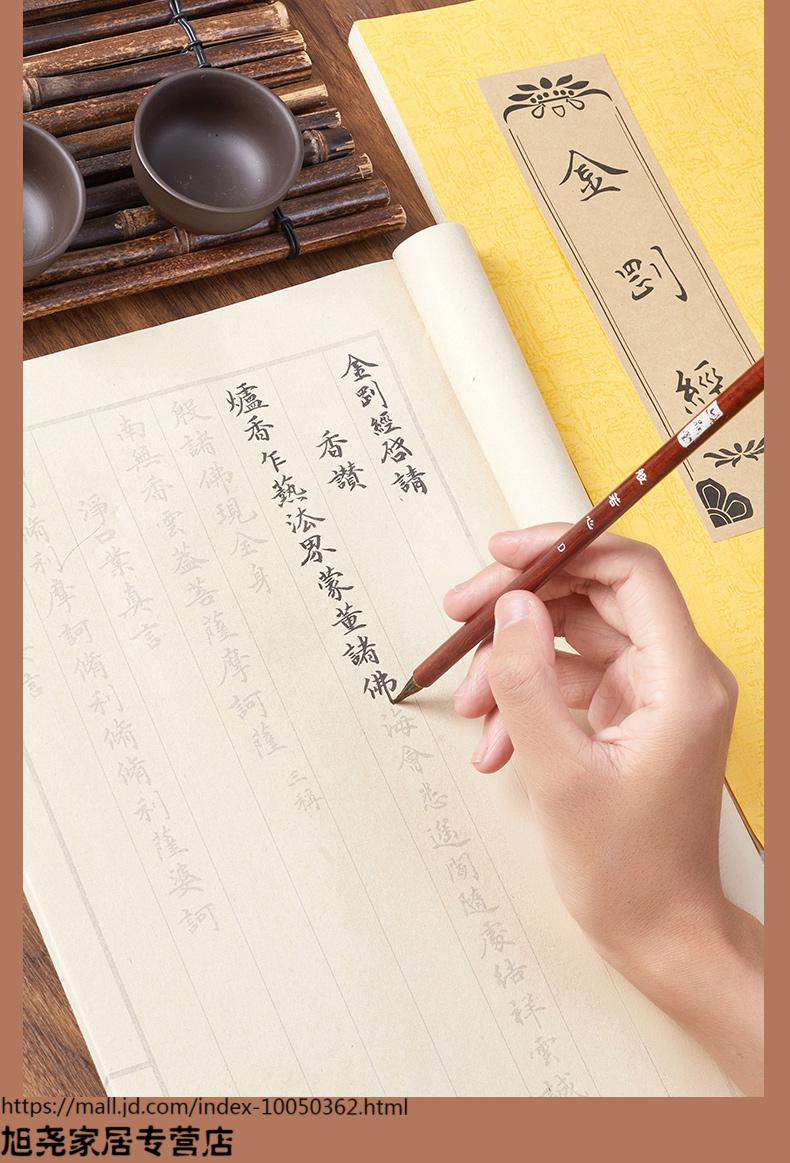 金剛經
般若心口
金剛經啓請
香讚
爐香乍爇法界蒙薰諸佛海會悉遥聞隨處結祥雲誠
殷諸佛現全身
南無香雲蓋菩薩摩訶薩 三稱
淨口業真言
脩利摩訶脩利脩脩利薩婆訶
言
https://mall.jd.com/index-10050362.html
旭尧家居专营店